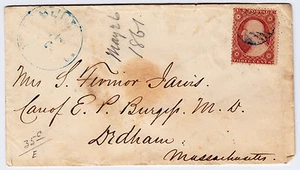 May 26
1861
Mrs S. Fermor Jarvis.
Care of E. P. Burgess M. D.
Dedham.
Massachusetts.
350
E